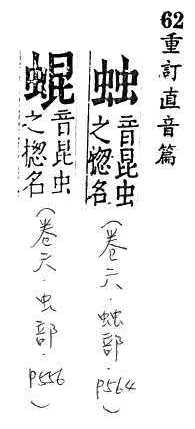 62 重訂直音篇
䖵 音昆虫
之揔名
(卷六·䖵部·P564)
蜫 音昆虫
之揔名
(卷六·虫部·P556)